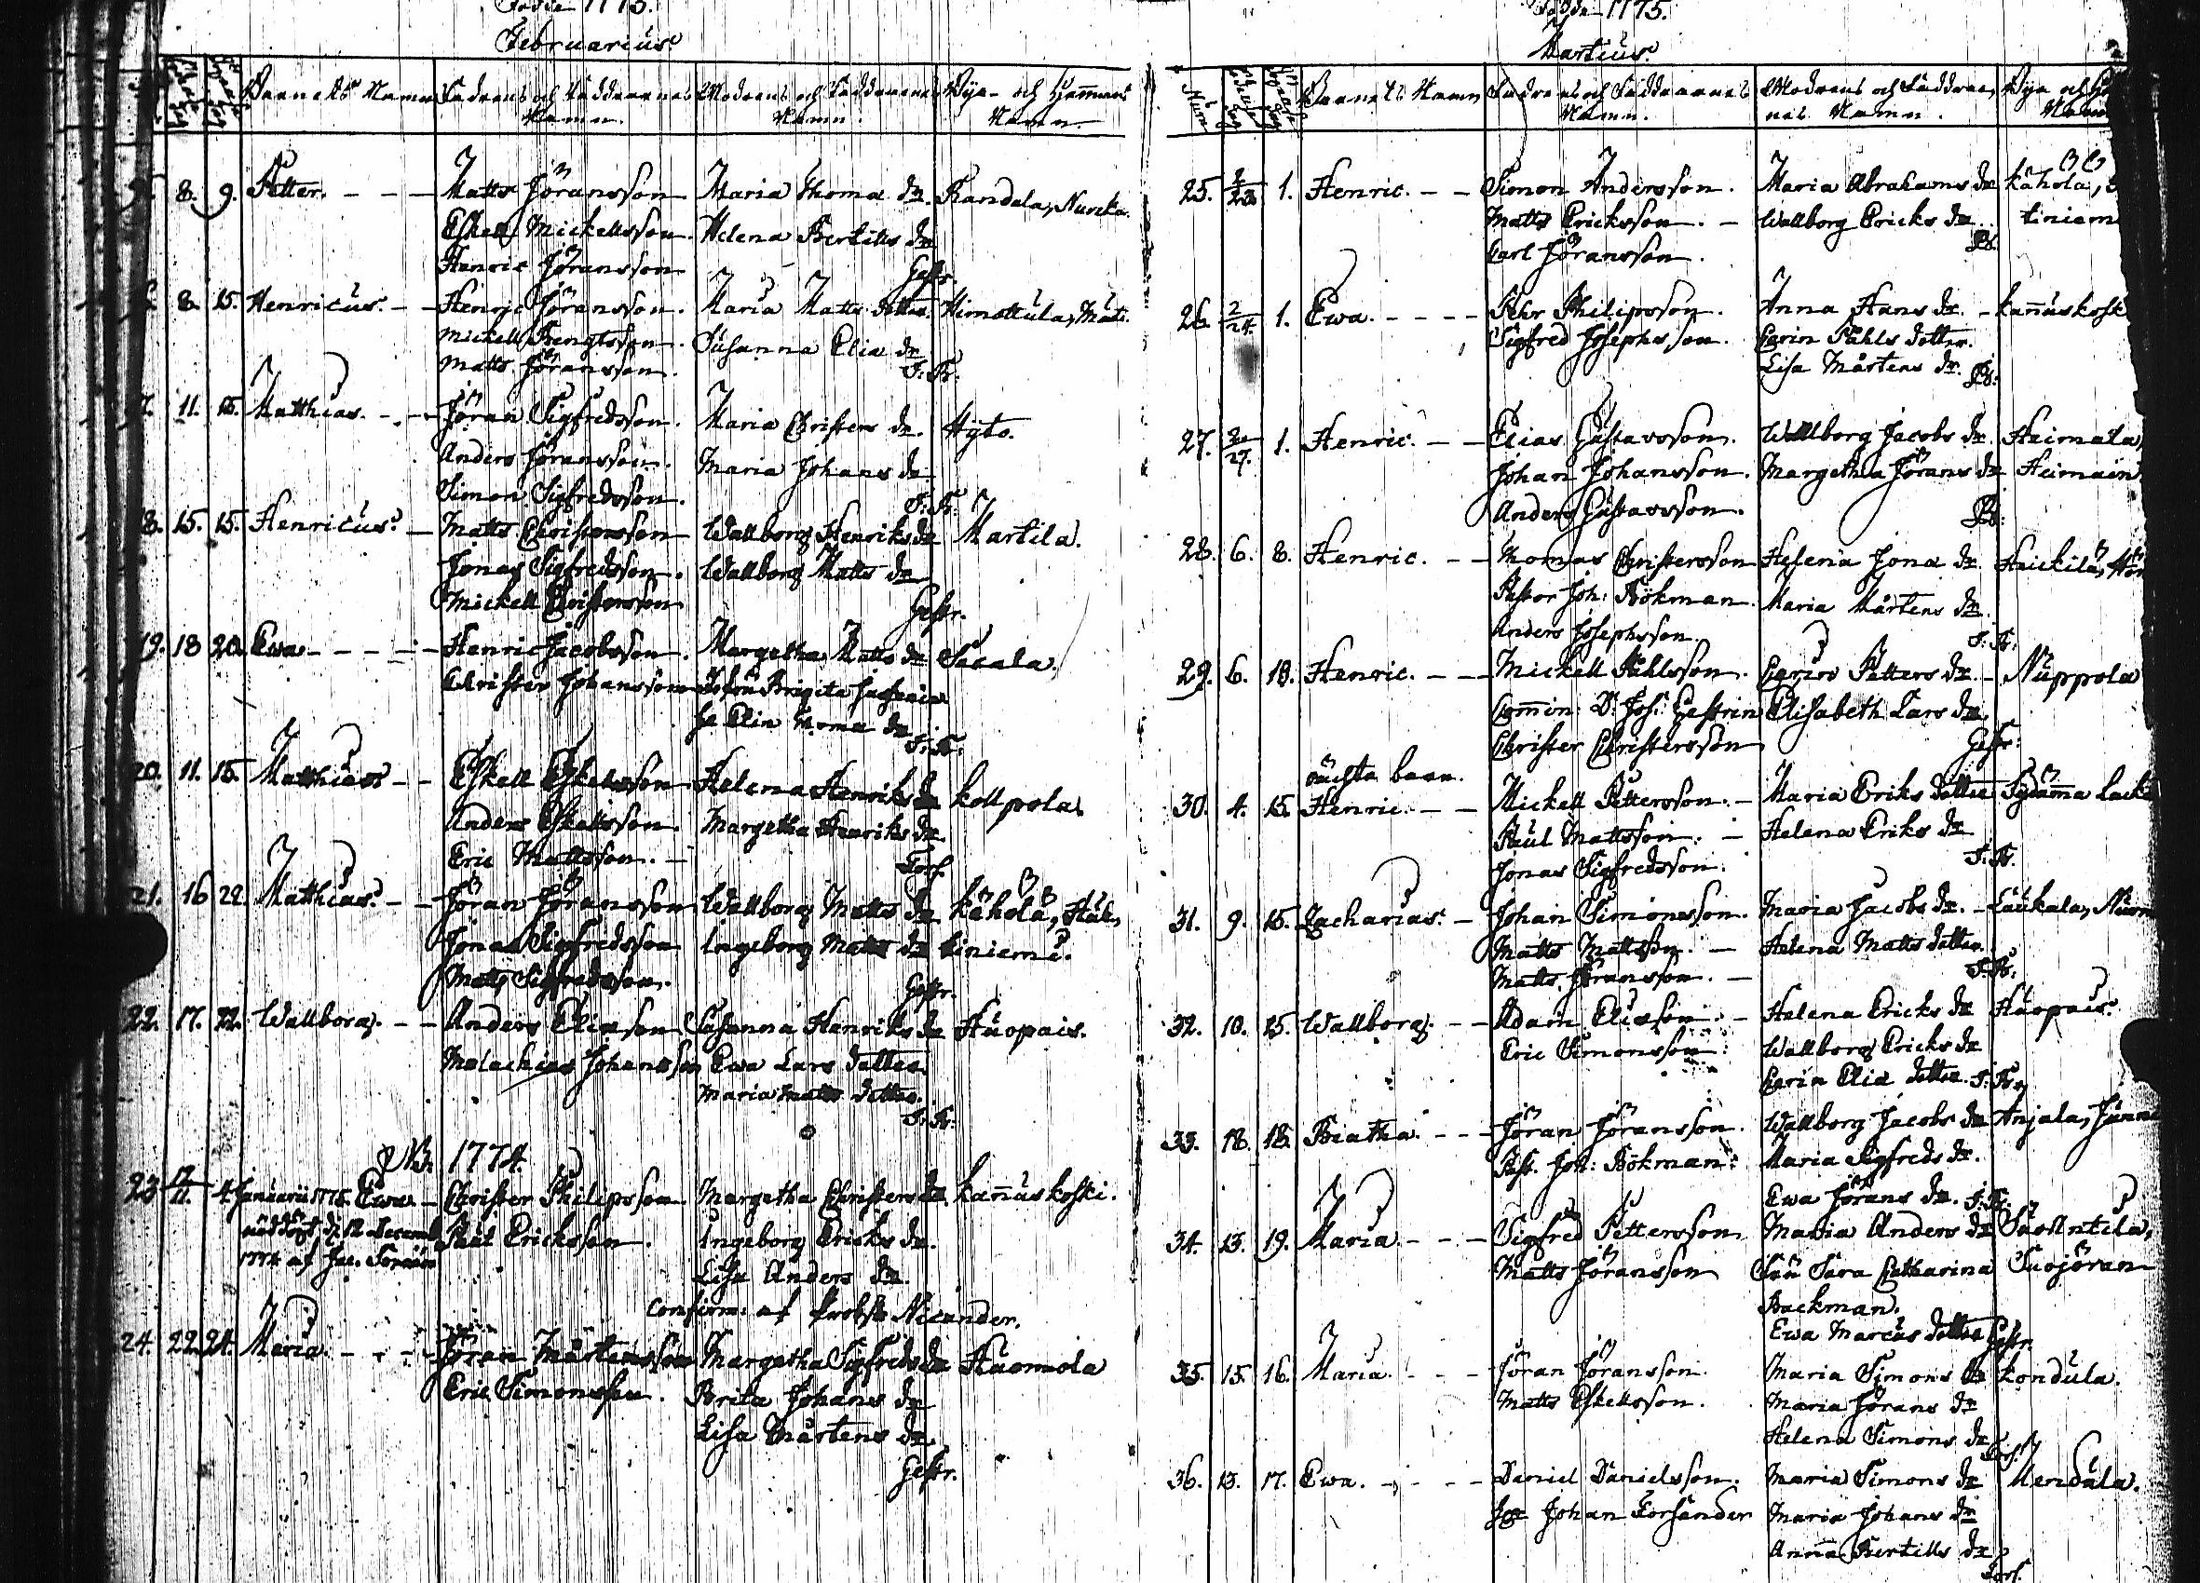 1775.
Februarius
Barnets Namn Fadrens och Faddrarnes Namn. Modrens och Faddrarnes Namn. Bya- och Hemmans Namn.
8. 9. Petter. Matts Jöransson Maria Thomæ dr. Randala, Nurcka.
Eskell Mickellsson Helena Bertills dr
Henric Jöransson Gestr.
8. 15. Henricus. Henric Jöransson. Maria Matts dotter. Himottula, Mati.
Mickell Bengtsson. Susanna Eliæ dr
Matts Jöransson. J: B:
11. 15. Matthias. Jöran Sigfredsson. Maria Christers dr. Hyto.
Anders Jöransson. Maria Johans dr
Simon Sigfredsson. J: B:
18. 15. 15. Henricus. Matts Christersson Wallborg Henriks dr Martila.
Jonas Sigfredsson. Wallborg Matts dr
Mickell Christersson Gestr.
19. 18 20. Ewa. Henric Jacobsson. Margetha Matts dr Sacala.
Christer Johansson Brigita
Elin Thomæ dr J: B:
20. 11. 15. Matthias Eskell Eskellsson Helena Henriks dr Kollpola.
Anders Eskellsson. Margetha Henriks dr
Eric Mattsson. Forf.
21. 16 22. Matthias. Jöran Jöransson Wallborg Matts dr Kähölä, Huk,
Jonas Sigfredsson Ingeborg Matts dr tiniemi.
Matts Sigfredsson. Gestr.
22. 17. 22. Wallborg. Anders Eliæson Susanna Henriks dr Huopais.
Malachias Johansson Ewa Lars dotter
Maria Matts dotter. J: B:
NB. 1774.
23 12/11. 4 Januarii 1775 Ewa Christer Philipsson Margetha Christers dr Kañuskoski.
nöddöpt d. 12 Decemb. Paul Ericksson. Ingeborg Ericks dr.
1774 af Jac. Lisa Anders dr
Confirm: af Probst Nicander.
24. 22 24. Maria. Jöran Mårtensson Margetha Sigfreds dr Huomola
Eric Simonsson. Brita Johans dr
Lisa Mårtens dr.
Gestr.
1775.
Martius.
Num Barnets Namn Fadrens och Faddrarnes Namn. Modrens och Faddrarnes Namn. Bya och
25. 2/23 1. Henric. Simon Andersson. Maria Abrahams dr Kähölä,
Matts Ericksson. Wallborg Ericks dr tiniem
Carl Jöransson. B:
26. 2/24. 1. Ewa. Pehr Philipsson. Anna Hans dr. Kañuskosk
Sigfred Josephsson. Carin Påhls dotter.
Lisa Mårtens dr. B:
27. 2/27. 1. Henric. Elias Gustavsson. Wallborg Jacobs dr Heimala,
Johan Johansson. Margetha Jörans dr Heimain
Anders Gustavsson. B:
28. 6. 8. Henric. Thomas Christersson Helena Jonæ dr. Heickilä,
Pastor Joh: Bökman. Maria Mårtens dr.
Anders Josephsson. J: B:
29. 6. 18. Henric. Mickell Påhlsson. Carin Petters dr. Nuppola
Commin: D: Jos: Gestrin Elisabeth Lars dr.
Christer Christersson Gestr:
oächta barn.
30. 4. 15. Henric. Mickell Pettersson. Maria Eriks dotter Sydänma
Paul Mattsson. Helena Eriks dr
Jonas Sigfredsson. J: B.
31. 9. 15. Zacharias. Johan Simonsson. Maria Jacobs dr. Laukala,
Matts Mattsson. Helena Matts dotter.
Matts Jöransson. J: B:
32. 10. 15. Wallborg. Adam Eliæson Helena Ericks dr Huopais.
Eric Simonsson. Wallborg Ericks dr
Carin Eliæ dotter. J: B:
33. 18. 18. Beatha. Jöran Jöransson. Wallborg Jacobs dr Anjala,
Past. Joh: Bökman. Maria Sigfreds dr.
Ewa Jörans dr. J: B:
34. 13. 19. Maria. Sigfred Pettersson Maria Anders dr SuoAntila,
Matts Jöransson Sara Catharina Suojöran
Backman.
Ewa Marcus dotter Gestr.
35. 15. 16. Maria. Jöran Jöransson. Maria Simons dr Kondula.
Matts Eskellsson. Maria Jörans dr
Helena Simons dr Forf.
36. 13. 17. Ewa. Daniel Danielsson. Maria Simons dr Mendula.
Johan Forsander Maria Johans dr
Anna Bertills dr
Forf.